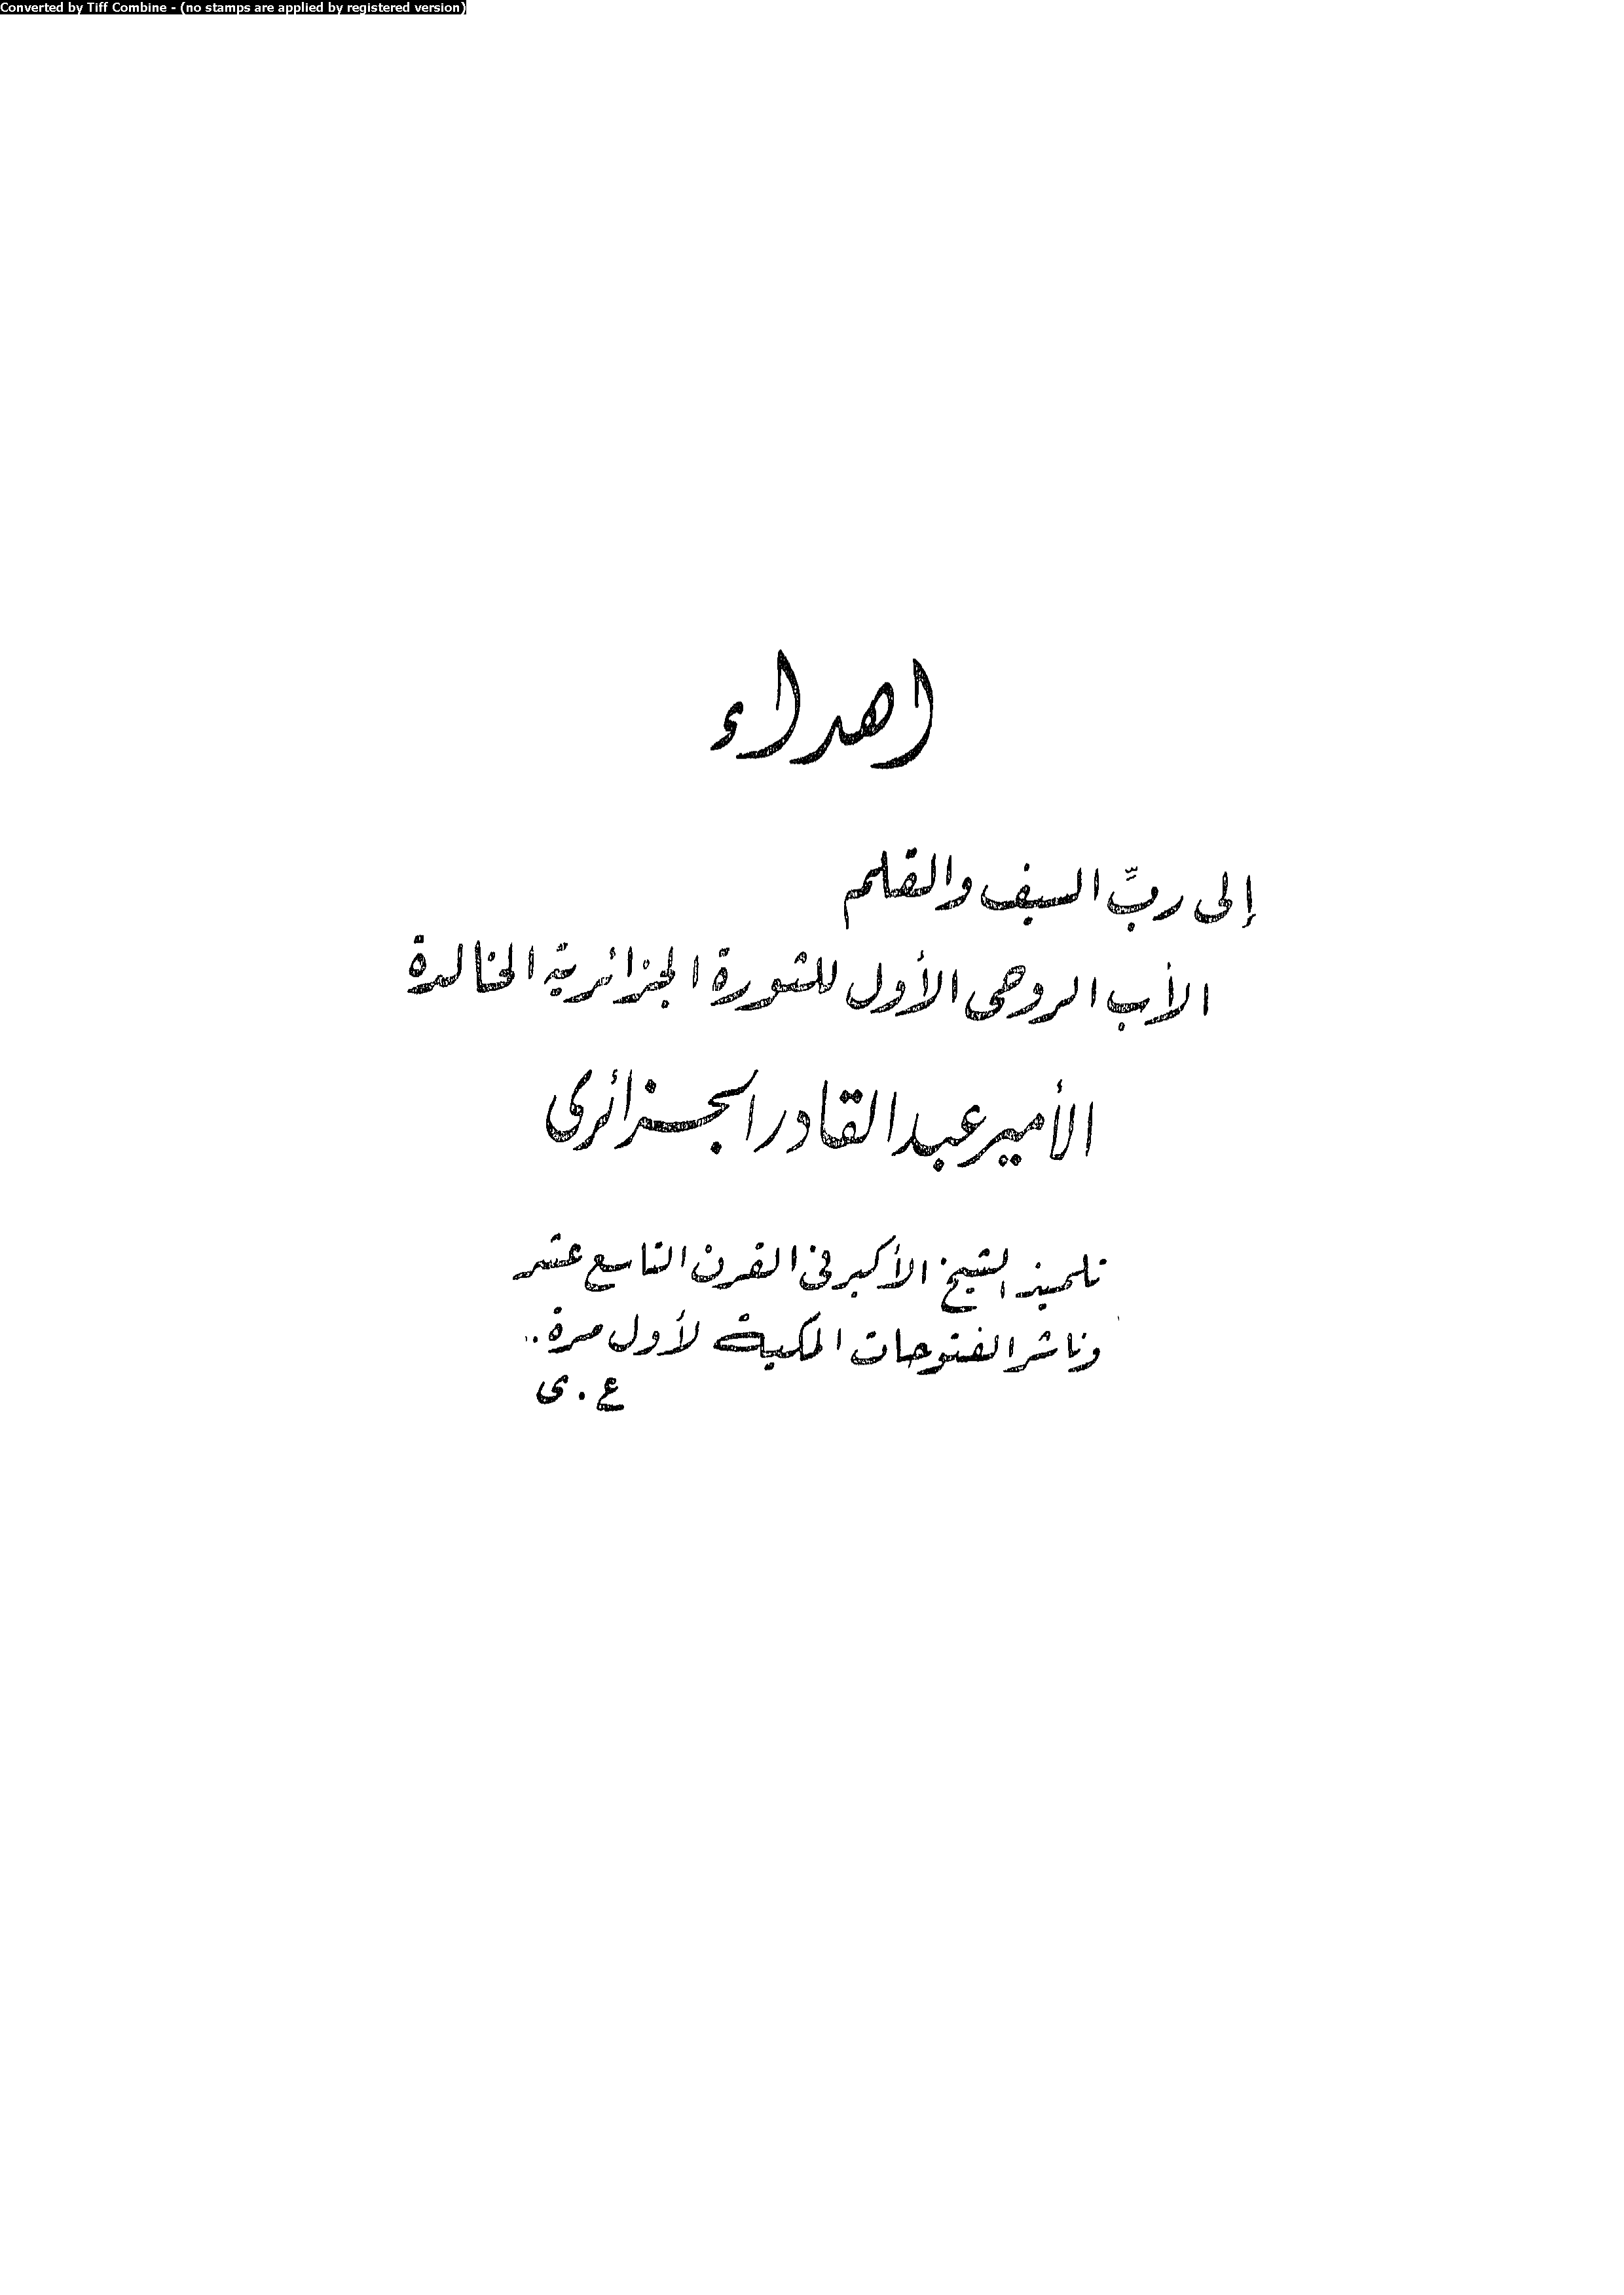 Converted by Tiff Combine - (no stamps are applied by registered version)
اهداء
إلى ربِّ السيف والقلم
الأب الروحى الأول للثورة الجزائرية الخالدة
الأمير عبد القادر الجزائرى
تلميذ الشيخ الأكبر فى القرن التاسع عشر
وناشر الفتوحات المكية لأول مرة..
ع . ى